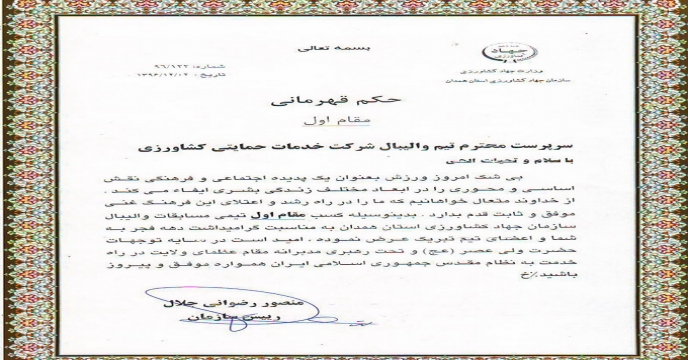 بسمه تعالی
جهاد
وزارت جهاد کشاورزی
سازمان جهاد کشاورزی استان همدان
شماره: ۹۶/۱۲۲
تاریخ: ۱۳۹۶/۱۲/۰۲
حکم قهرمانی
مقام اول
سرپرست محترم تیم والیبال شرکت خدمات حمایتی کشاورزی
با سلام و تحیات الهی
بی شک امروز ورزش بعنوان یک پدیده اجتماعی و فرهنگی نقش
اساسی و محوری را در ابعاد مختلف زندگی بشری ایفاء می کند .
از خداوند متعال خواهانیم که ما را در راه رشد و اعتلای این فرهنگ غنی
موفق و ثابت قدم بدارد . بدینوسیله کسب مقام اول تیمی مسابقات والیبال
سازمان جهاد کشاورزی استان همدان به مناسبت گرامیداشت دهه فجر به
شما و اعضای تیم تبریک عرض نموده . امید است در سایه توجهات
حضرت ولی عصر (عج) و تحت رهبری مدبرانه مقام عظمای ولایت در راه
خدمت به نظام مقدس جمهوری اسلامی ایران همواره موفق و پیروز
باشید٪خ
منصور رضوانی جلال
رییس سازمان